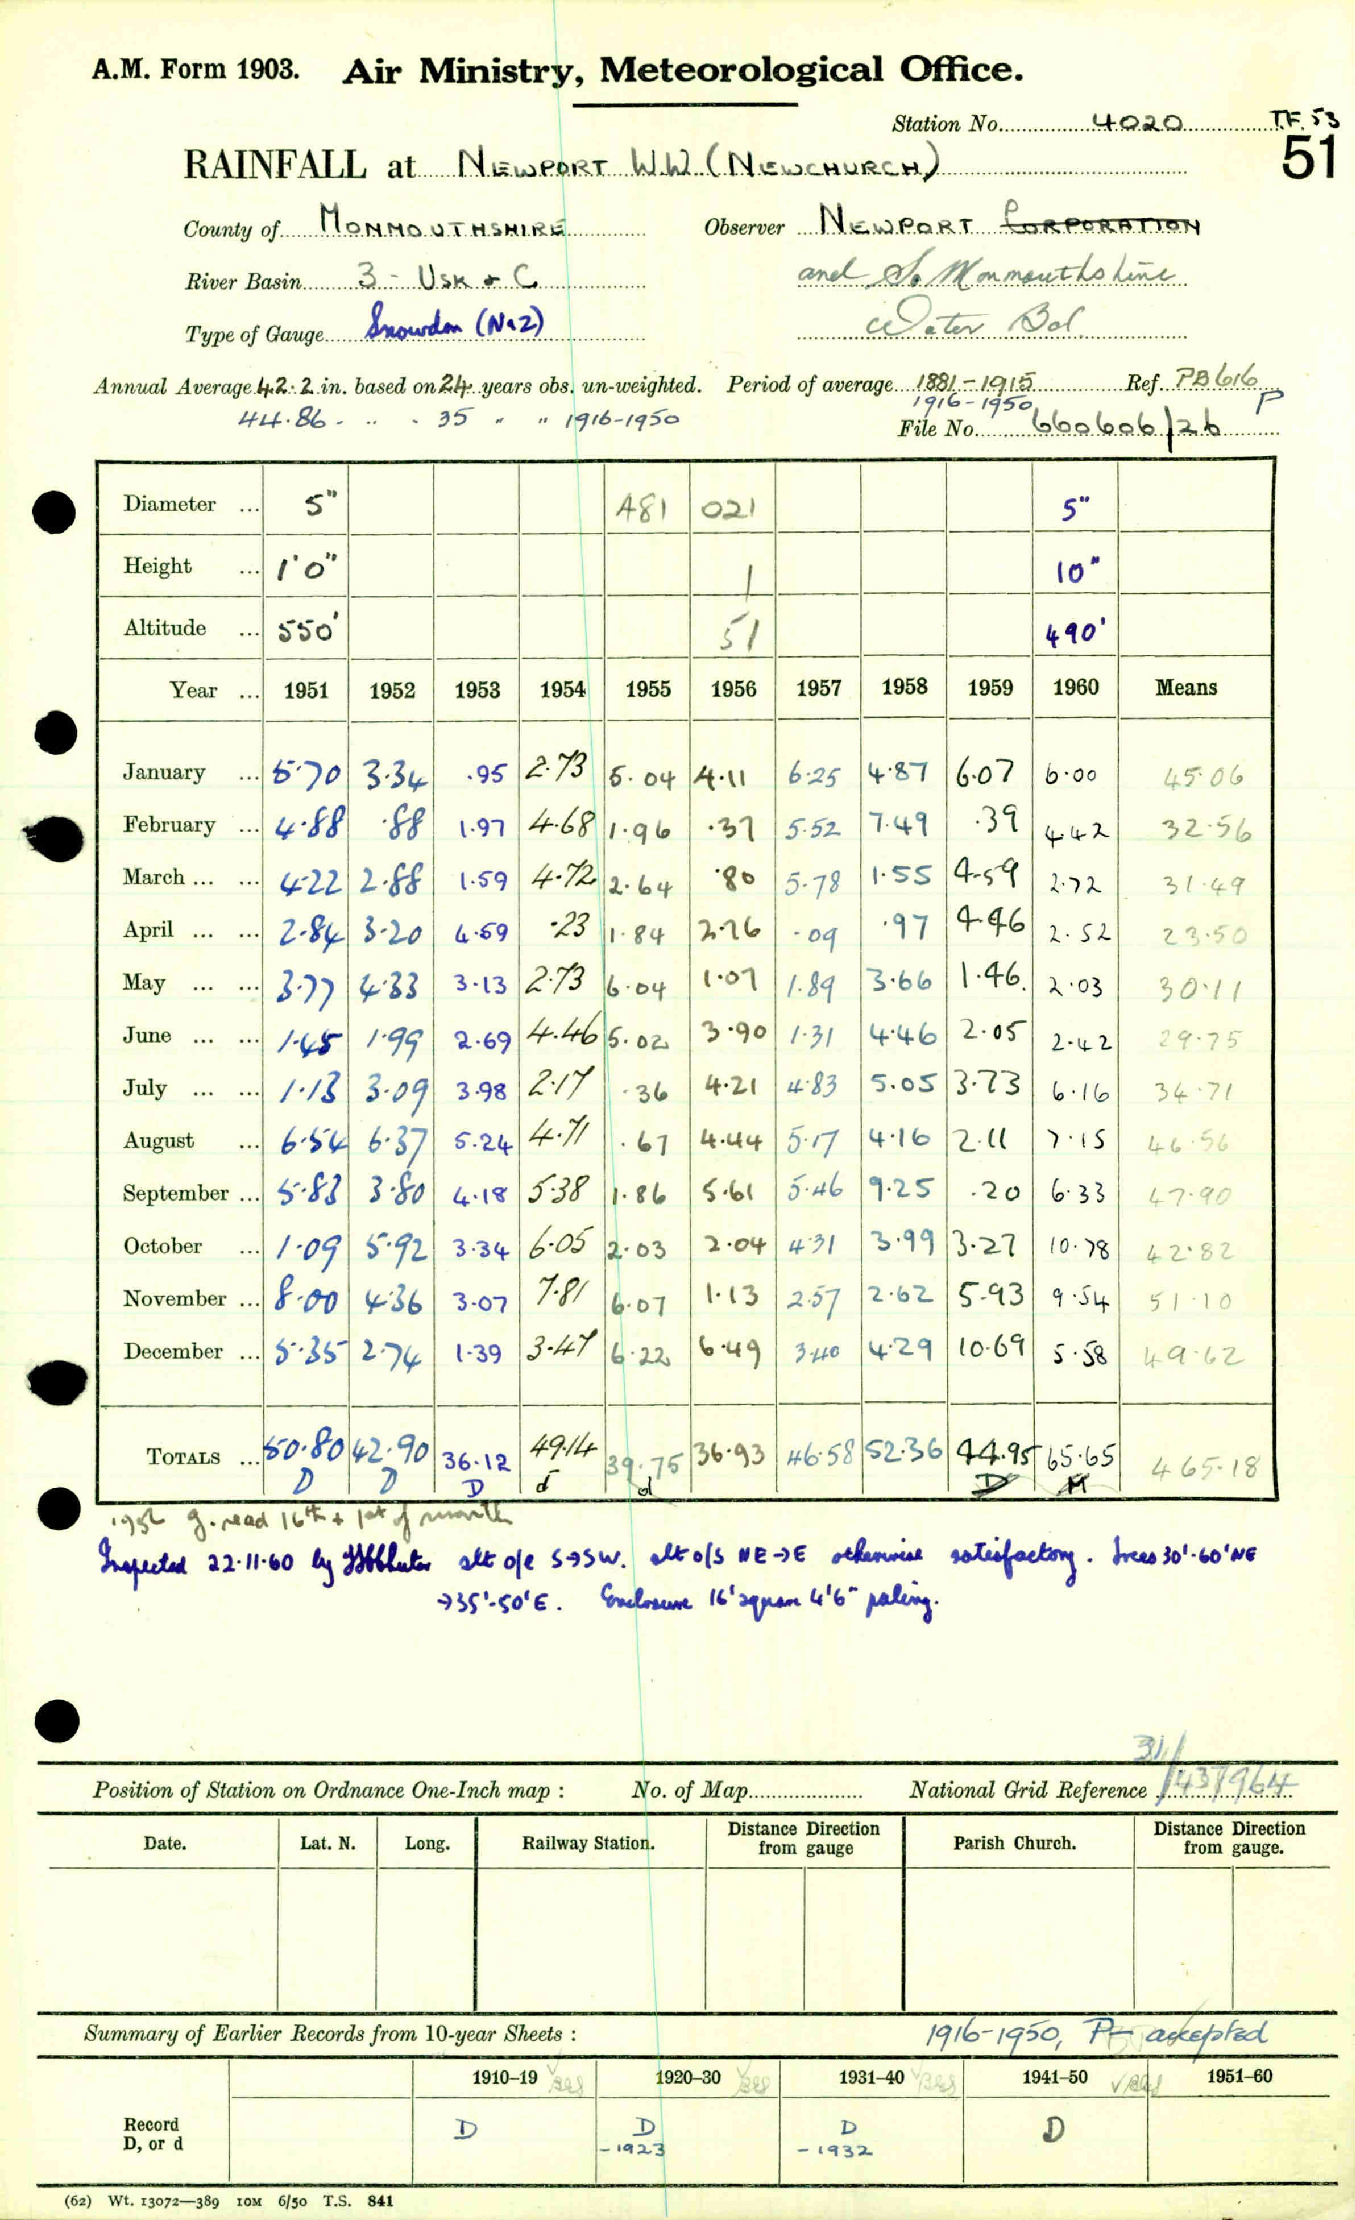 A.M. Form 1903. Air Ministry, Meteorological Office.
Station No. 4020 T.F. 53
51
RAINFALL at NEWPORT W.W. (NEWCHURCH)
County of MONMOUTHSHIRE Observer NEWPORT CORPORATION
River Basin 3 - USK & C. and So. Monmouthshire
Type of Gauge Snowdon (No2) Water Bd.
Annual Average 42.2 in. based on 24 years obs. un-weighted. Period of average 1881-1915 Ref. PB616
1916-1950 P
44.86 - .. . 35 " " 1916-1950 File No. 660606/26
Diameter ... 5" A81 021 5"
Height ... 1'0" 1 10"
Altitude ... 550' 51 490'
Year ... 1951 1952 1953 1954 1955 1956 1957 1958 1959 1960 Means
January ... 5.70 3.34 .95 2.73 5.04 4.11 6.25 4.87 6.07 6.00 45.06
February ... 4.88 .88 1.97 4.68 1.96 .37 5.52 7.49 .39 4.42 32.56
March ... ... 4.22 2.88 1.59 4.72 2.64 .80 5.78 1.55 4.59 2.72 31.49
April ... ... 2.84 3.20 4.59 .23 1.84 2.76 .09 .97 4.46 2.52 23.50
May ... ... 3.77 4.33 3.13 2.73 6.04 1.07 1.89 3.66 1.46 2.03 30.11
June ... ... 1.45 1.99 2.69 4.46 5.02 3.90 1.31 4.46 2.05 2.42 29.75
July ... ... 1.13 3.09 3.98 2.17 .36 4.21 4.83 5.05 3.73 6.16 34.71
August ... 6.54 6.37 5.24 4.71 .67 4.44 5.17 4.16 2.11 7.15 46.56
September ... 5.83 3.80 4.18 5.38 1.86 5.61 5.46 9.25 .20 6.33 47.90
October ... 1.09 5.92 3.34 6.05 2.03 2.04 4.31 3.99 3.27 10.78 42.82
November ... 8.00 4.36 3.07 7.81 6.07 1.13 2.57 2.62 5.93 9.54 51.10
December ... 5.35 2.74 1.39 3.47 6.22 6.49 3.40 4.29 10.69 5.58 49.62
TOTALS ... 50.80 42.90 36.12 49.14 39.75 36.93 46.58 52.36 44.95 65.65 465.18
D D D d d D M
1956 g. read 16th + 1st of month
Inspected 22.11.60 by alt o/e S→SW. alt o/s NE→E otherwise satisfactory. Trees 30'-60' NE
→35'-50' E. Enclosure 16' square 4'6" paling.
31/
Position of Station on Ordnance One-Inch map : No. of Map National Grid Reference /437964
Date. Lat. N. Long. Railway Station. Distance from Direction gauge Parish Church. Distance from Direction gauge.
Summary of Earlier Records from 10-year Sheets : 1916-1950, P- accepted
1910–19 1920–30 1931–40 1941–50 1951–60
Record D, or d D D D D
-1923 -1932
(62) Wt. 13072—389 10M 6/50 T.S. 841